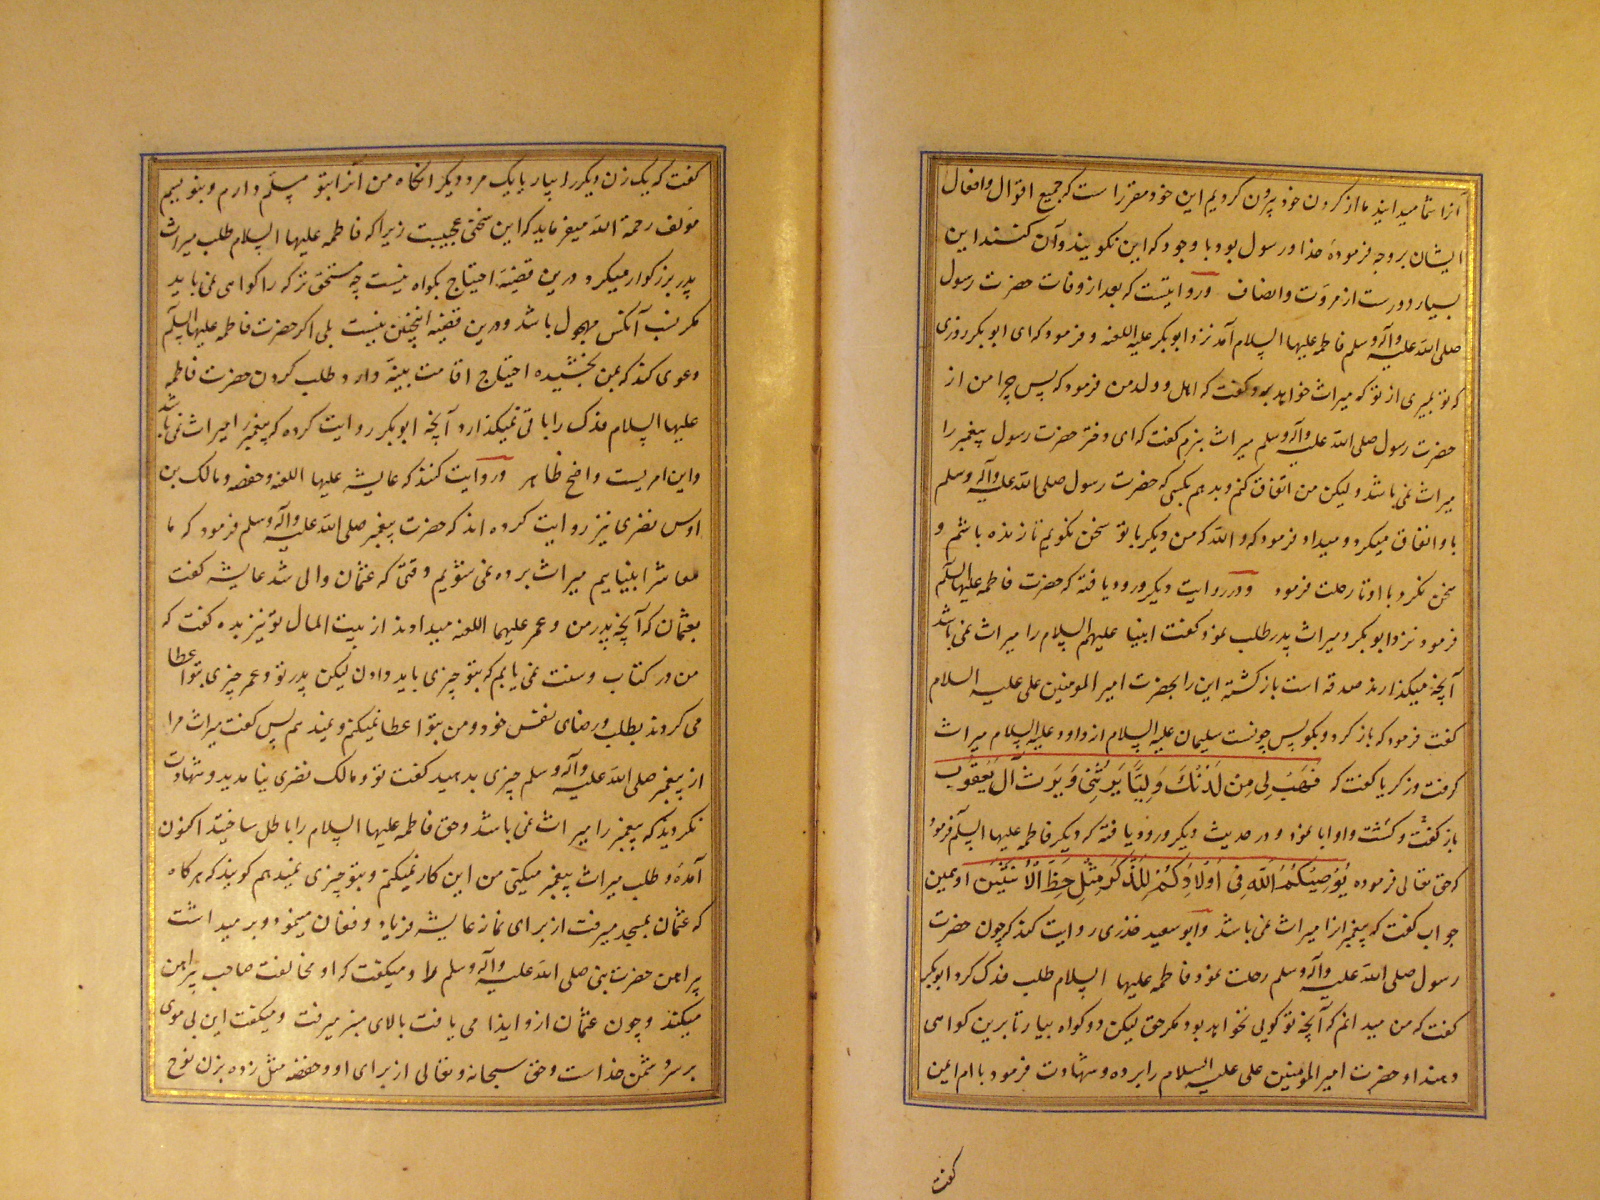 آنرا شما میدانید ما از کردن خود بیرون کردیم این خود مقرر است که جمیع اقوال و افعال
ایشان بر وجه فرمودهٔ خدا و رسول بود با وجود که این نکویند و آن کنند این
بسیار دورست از مروّت و انصاف و روایتست که بعد از وفات حضرت رسول
صلی الله علیه وآله وسلم فاطمه علیها السلام آمد نزد ابوبکر علیه اللعنه و فرمود که ای ابوبکر روزی
که تو بمیری از تو که میراث خواهد برد کفت که اهل و ولد من فرمود که پس چرا من از
حضرت رسول صلی الله علیه وآله وسلم میراث نبرم کفت که ای دختر حضرت رسول پیغمبر را
میراث نمی باشد و لیکن من انفاق کنم و بدهم بکسی که حضرت رسول صلی الله علیه وآله وسلم
با و انفاق میکرد و میداد فرمود که والله که من دیکر با تو سخن نکویم تا زنده باشم و
سخن نکرد با او تا رحلت فرمود و در روایت دیکر ورود یافته که حضرت فاطمه علیها السلم
فرمود نزد ابوبکر و میراث پدر طلب نمود کفت انبیا علیهم السلام را میراث نمی باشد
آنچه میکذارند صدقه است باز کشته این را بحضرت امیر المومنین علی علیه السلام
کفت فرمود که باز کرد و بکو پس چونست سلیمان علیه السلام از داود علیه السلام میراث
کرفت و زکریا کفت که فَهَبْ لِی مِن لَدُنْكَ وَلِیًّا یَرِثُنِی وَیَرِثُ آلَ یَعْقُوبَ
باز کفت و کشت و او ابا نمود و در حدیث دیکر ورود یافته که دیکر فاطمه علیها السلم فرمود
که حق تعالی فرموده یُوصِیکُمُ اللَّهِ فِی اَوْلَادِکُمْ لِلذَّکَرِ مِثْلُ حَظِّ الْأُنْثَیَیْنِ او همین
جواب کفت که پیغمبرانرا میراث نمی باشد و ابو سعید خذری روایت کند که چون حضرت
رسول صلی الله علیه وآله وسلم رحلت نمود فاطمه علیها السلام طلب فدک کرد ابوبکر
کفت که من میدانم که آنچه تو کویی نخواهد بود مکر حق لیکن دو کواه بیار تا برین کواهی
دهند او حضرت امیر المومنین علی علیه السلام را برده و شهادت فرمود با ام ایمن
کفت
کفت که یک زن دیکر را بیار یا یک مرد دیکر آنکاه من آنرا بتو مسلّم دارم و بتو بسپم
مؤلف رحمة الله میفرماید که این سخنی عجیبت زیرا که فاطمه علیها السلام طلب میراث
پدر بزرکوار میکرد و درین قضیه احتیاج بکواه نیست چه مستحق ترکه را کواهی نمی باید
مکر نسب آنکس مجهول باشد و درین قضیه اینچنین نیست بلی اکر حضرت فاطمه علیها السلم
دعوی کند که بمن بخشیده احتیاج اقامت بینه دارد و طلب کردن حضرت فاطمه
علیها السلام فدک را باقی نمیکذارد آنچه ابوبکر روایت کرده که پیغمبر را میراث نمی باشد
و این امریست واضح ظاهر و روایت کنند که عایشه علیها اللعنه و حفصه و مالک بن
اوس نضری نیز روایت کرده اند که حضرت پیغمبر صلی الله علیه وآله وسلم فرمود که ما
معاشر انبیاییم میراث برده نمی شویم وقتی که عثمان والی شد عایشه کفت
بعثمان که آنچه پدر من و عمر علیهما اللعنه میدادند از بیت المال تو نیز بده کفت که
من در کتاب و سنت نمی یابم که بتو چیزی باید دادن لیکن پدر تو و عمر چیزی بتو اعطا
می کردند بطلب و رضای نفس خود و من بتو اعطا نمیکنم و نمیدهم پس کفت میراث مرا
از پیغمبر صلی الله علیه وآله وسلم چیزی بدهید کفت تو و مالک نضری نیامدید و شهادت
نکردید که پیغمبر را میراث نمی باشد و حق فاطمه علیها السلام را باطل ساختید اکنون
آمدهٔ و طلب میراث پیغمبر میکنی من این کار نمیکنم و بتو چیزی نمیدهم کویند که هرکاه
که عثمان بمسجد میرفت از برای نماز عایشه فریاد و فغان مینمود و بر میداشت
پیراهن حضرت نبی صلی الله علیه وآله وسلم را و میکفت که او مخالفت صاحب پیراهن
میکند و چون عثمان ازو ایذا می یافت بالای منبر میرفت و میکفت این بی موی
بر سر دشمن خذاست و حق سبحانه و تعالی از برای او و حفضه مثل زده بزن نوح